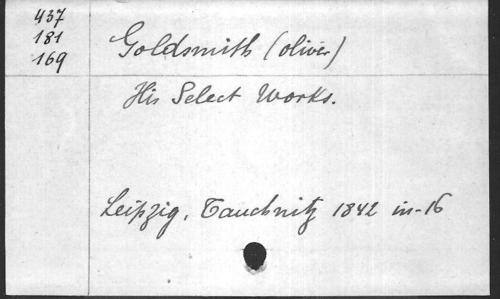 437
181
169
Goldsmith (oliver)
His Select Works.
Leipzig, Tauchnitz 1842 in-16